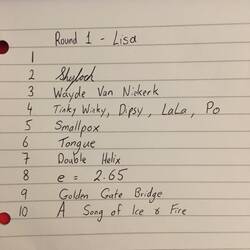 Round 1 - Lisa
1
2 Shylock
3 Wayde Van Niekerk
4 Tinky Winky, Dipsy, LaLa, Po
5 Smallpox
6 Tongue
7 Double Helix
8 e = 2.65
9 Golden Gate Bridge
10 A Song of Ice & Fire